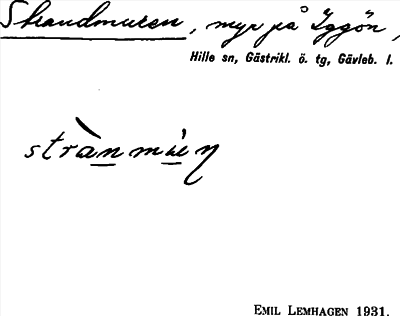 Strandmuren, myr på Iggön,
Hille sn, Gästrikl. ö. tg, Gävleb. l.
EMIL LEMHAGEN 1931.